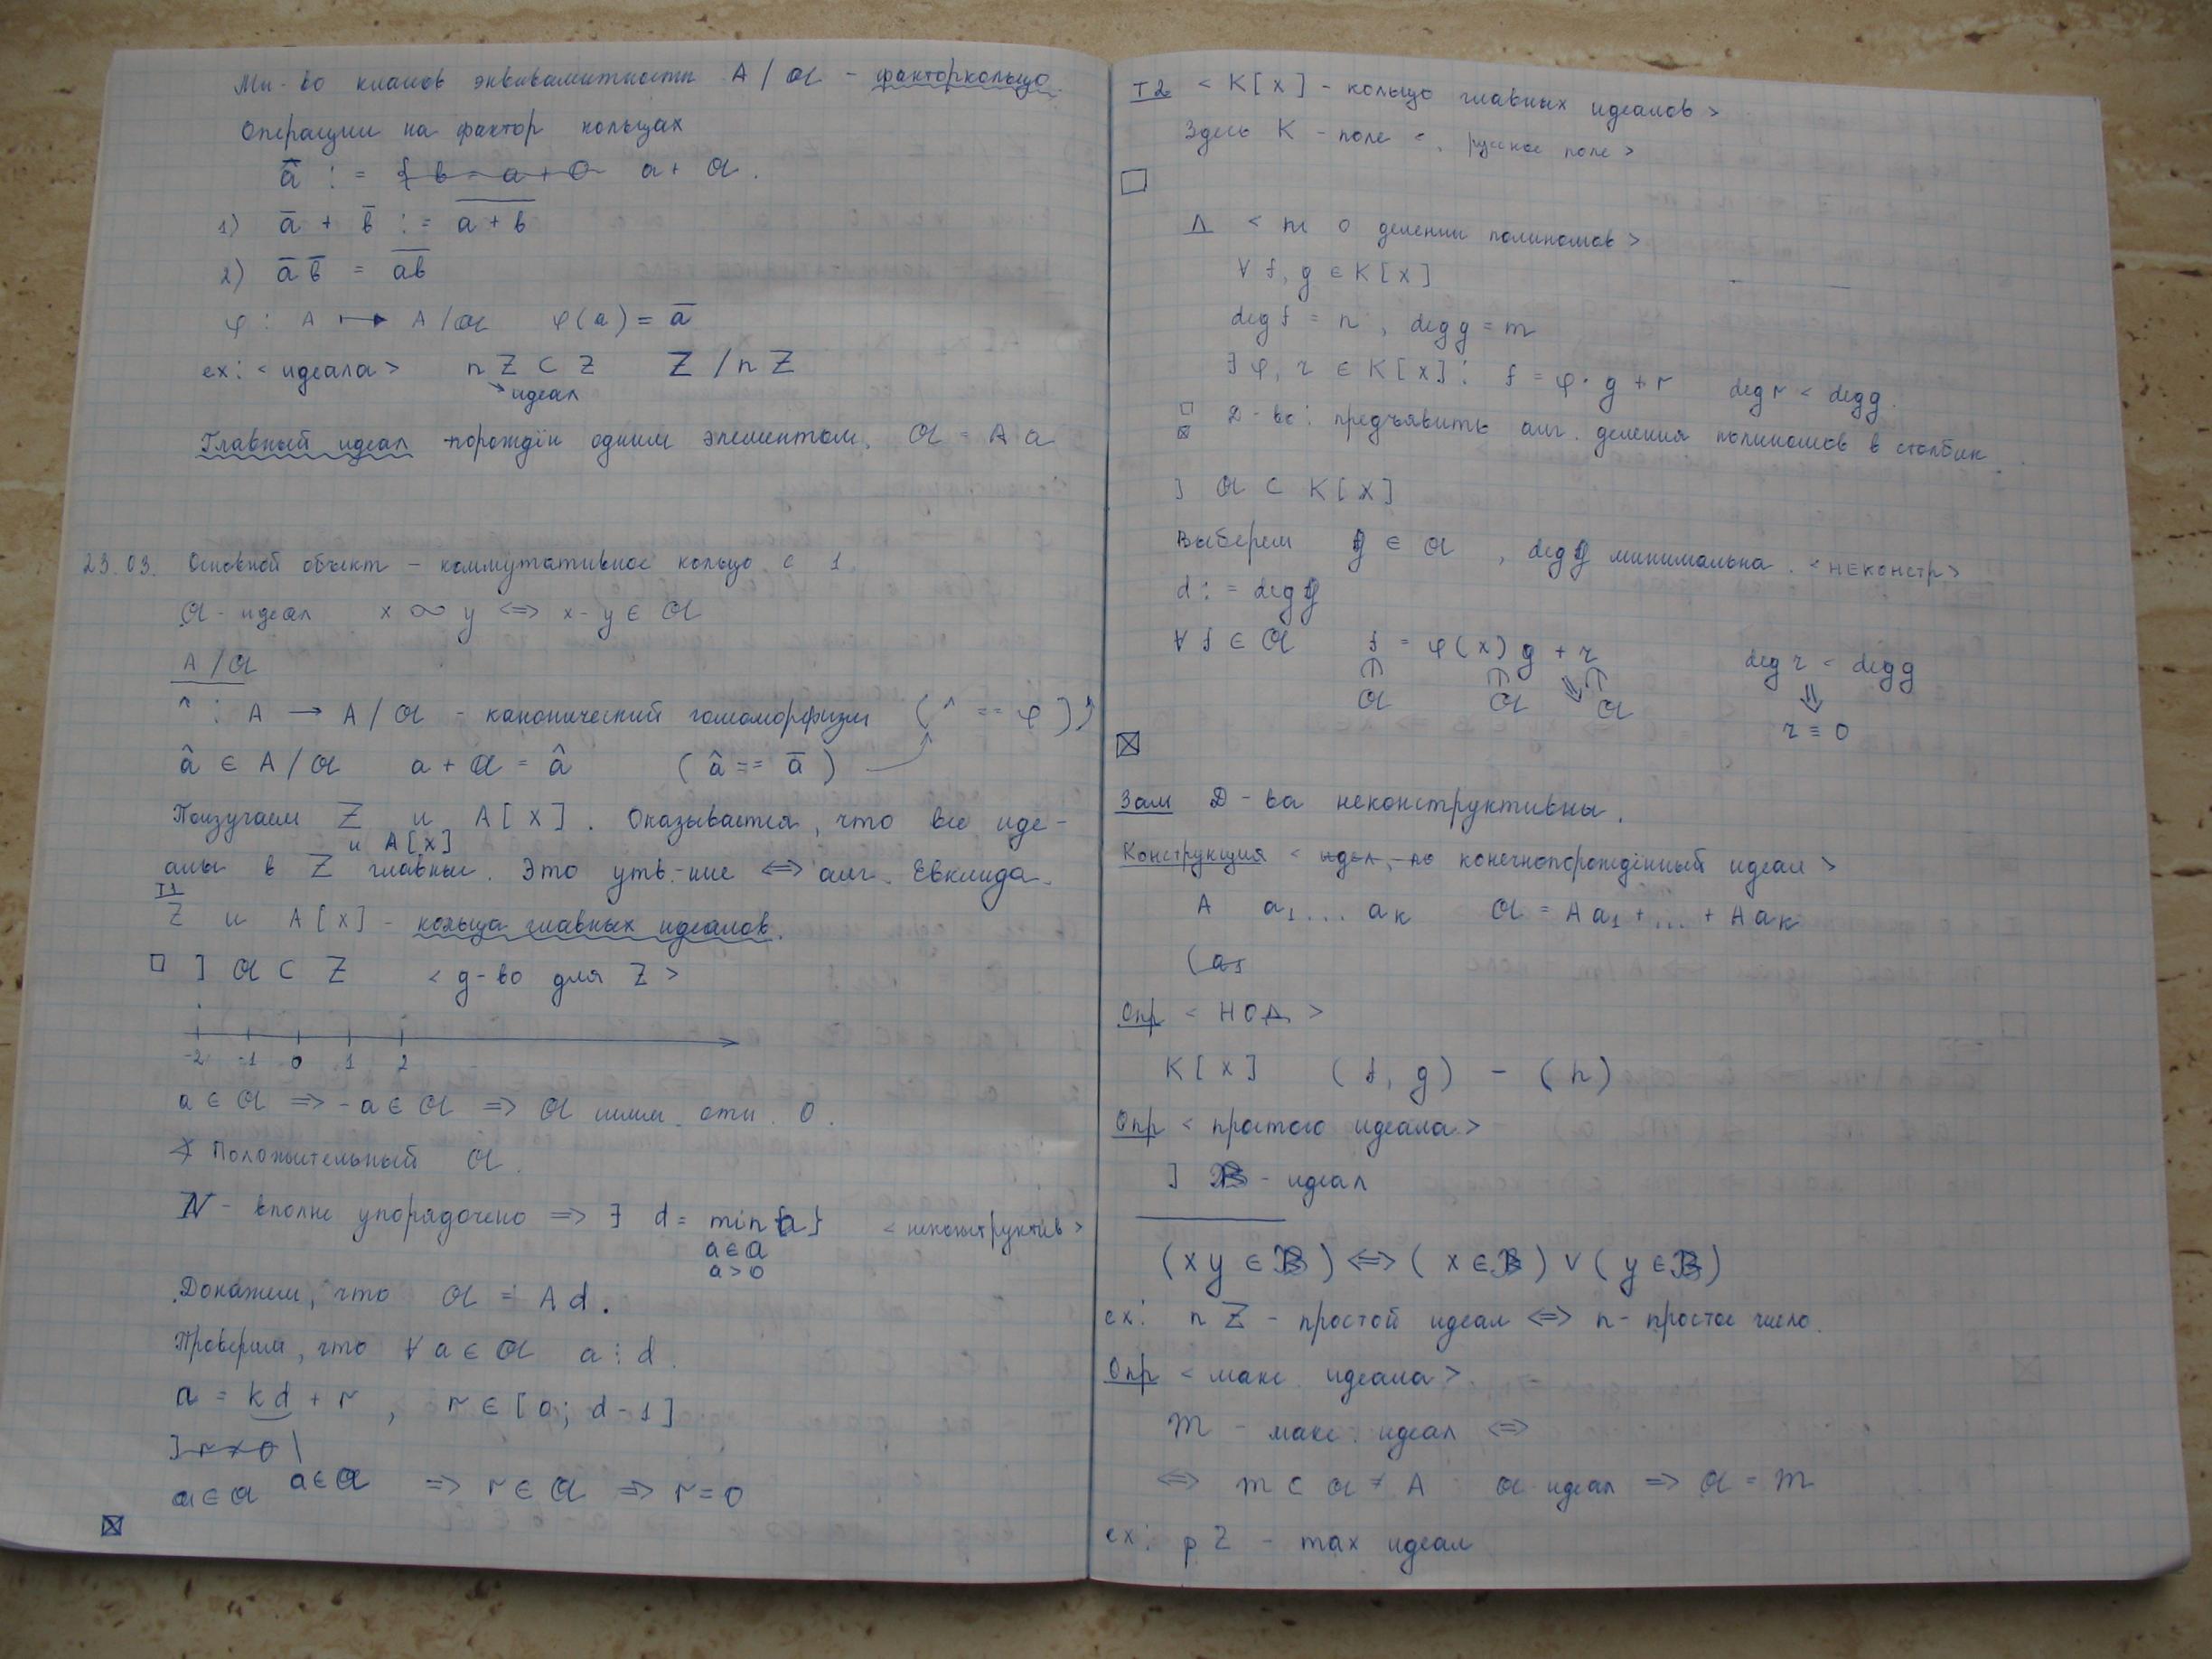 Мн-во классов эквивалентности A/𝔞 - факторкольцо.
Операции на фактор кольцах
ā := { b = a + 0 a + 𝔞.
1) ā + b̄ := \overline{a + b}
2) ā b̄ = \overline{ab}
φ : A ↦ A/𝔞 φ(a) = ā
ex: <идеала> nZ ⊂ Z Z/nZ
→ идеал
Главный идеал - порождён одним элементом. 𝔞 = A a
23.03. Основной объект - коммутативное кольцо с 1.
𝔞 - идеал x ∞ y <=> x - y ∈ 𝔞
A/𝔞
^ : A → A/𝔞 - канонический гомоморфизм (^ == φ)
â ∈ A/𝔞 a + 𝔞 = â (â == ā)
Поизучаем Z и A[x]. Оказывается, что все иде-
и A[x]
алы в Z главные. Это утв.-ние <=> алг. Евклида.
T1
Z и A[x] - кольца главных идеалов.
□ ] 𝔞 ⊂ Z <д-во для Z>
-2 -1 0 1 2
a ∈ 𝔞 => -a ∈ 𝔞 => 𝔞 симм. отн. 0.
Положительный 𝔞.
N - вполне упорядочено => ∃ d = min{a} <неконструктив>
a ∈ 𝔞
a > 0
Докажем, что 𝔞 = A d.
Проверим, что ∀ a ∈ 𝔞 a ⋮ d.
a = kd + r, r ∈ [0; d-1]
] r ≠ 0
a ∈ 𝔞 a ∈ 𝔞 => r ∈ 𝔞 => r = 0
T2 < K[x] - кольцо главных идеалов >
Здесь K - поле <. русское поле >
□
Λ < т о делении полиномов >
∀ f, g ∈ K[x]
deg f = n, deg g = m
∃ φ, r ∈ K[x]: f = φ · g + r deg r < deg g.
□ Д-во: предъявить алг. деления полиномов в столбик.
] 𝔞 ⊂ K[x]
Выберем g ∈ 𝔞, deg g минимальна. <неконстр>
d := deg g
∀ f ∈ 𝔞 f = φ(x) g + r deg r < deg g
𝔞 𝔞 𝔞 r ≡ 0
Зам Д-ва неконструктивны.
Конструкция < идеал, по конечнопорождённый идеал >
A a₁ ... aₖ 𝔞 = A a₁ + ... + A aₖ
(a₁
Опр < НОД >
K[x] (f, g) - (h)
Опр < простого идеала >
] 𝔅 - идеал
(xy ∈ 𝔅) <=> (x ∈ 𝔅) ∨ (y ∈ 𝔅)
ex: nZ - простой идеал <=> n - простое число.
Опр < макс. идеала >
m - макс. идеал <=>
<=> m ⊂ 𝔞 ≠ A 𝔞 идеал => 𝔞 = m
ex: pZ - max идеал